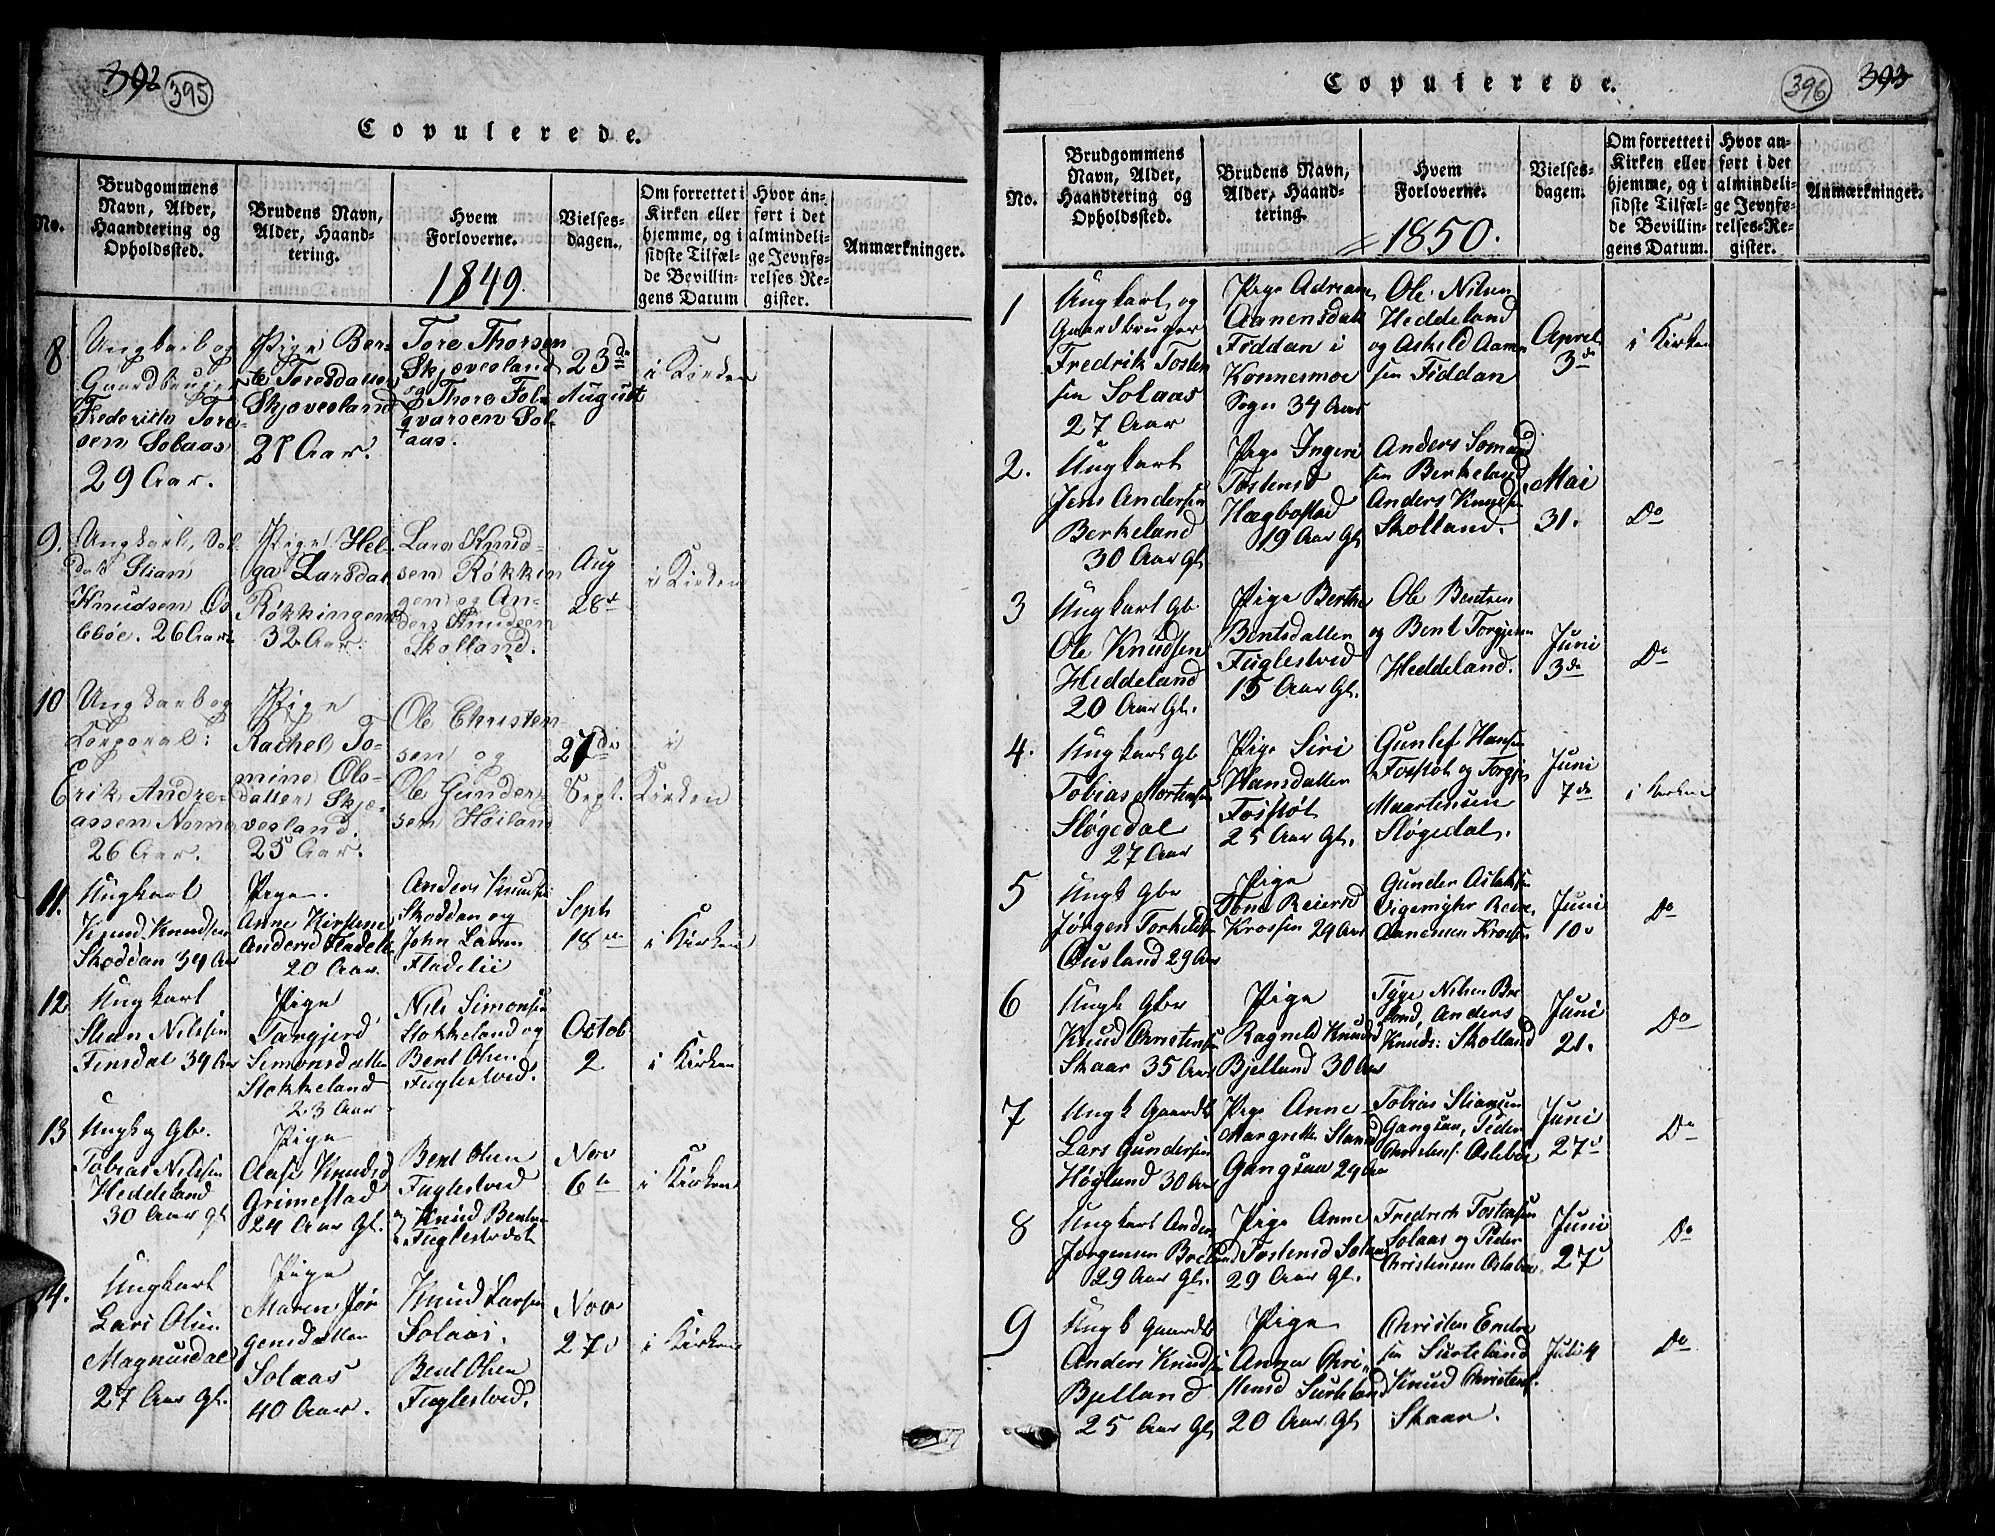 392 395
Copulerede.
No.
Brudgommens
Navn, Alder,
Haandtering og
Opholdssted.
Brudens Navn,
Alder, Haand-
tering.
Hvem
Forloverne.
1849.
Vielses-
dagen.
Om forrettet i
Kirken eller
hjemme, og i
sidste Tilfæl-
de Bevillin-
gens Datum
Hvor an-
ført i det
almindeli-
ge Jevnfø-
relses Re-
gister.
Anmærkninger.
8
Ungkarl og
Gaardbruger
Frederik Tore-
sen Solaas
29 Aar.
Pige Ber-
te Toresdatter
Skjævesland
21 Aar.
Tore Thorsen
Skjævesland
og Thore Fol-
qvarsen Sol-
aas.
23de
August
i Kirken
9.
Ungkarl, Sol-
dat Stian
Knudsen Os-
lebøe. 26 Aar
Pige Hel-
ga Larsdat
Røkkingen
32 Aar.
Lars Knud-
sen Røkkin
gen og An-
ders Knudsen
Skolland.
Aug
28de
i Kirken
10
Ungkarl og
Corporal:
Erik Andre-
assen Nome
26 Aar.
Pige
Rachel To-
mine Ols-
datter Skjæ-
vesland.
25 Aar.
Ole Christen-
sen og
Ole Gunder-
sen Høiland
27de
Sept.
i
Kirken
11.
Ungkarl
Knud Knudsen
Skoddan 34 Aar
Pige
Anne Kirstine
Andersd Fladelii
20 Aar.
Anders Knudsen
Skoddan og
John Larsen
Fladelii
Septb
18de
i Kirken
12
Ungkarl
Stian Nilssen
Finsdal 39 Aar
Pige
Targjerd
Simonsdatter
Stokkeland
23 Aar
Nils Simonsen
Stokkeland og
Bent Olsen
Fuglestved.
Octob
2
i Kirken
13
Ungk og Gbr.
Tobias Nilssen
Heddeland
30 Aar gl
Pige
Aase Knudsd
Grimestad
24 Aar Gl.
Bent Olsen
Fuglestved
og Knud Bentsen
Fuglestvedt
Nov
6te
i Kirken
14.
Ungkarl
Lars Olsen
Magnusdal
27 Aar Gl.
Pige
Maren Jør
gensdatter
Solaas
40 Aar.
Knud Larsen
Solaas.
Bent Olsen
Fuglestved.
Nov
27d
i Kirken
Copulerede.
396 393
No.
Brudgommens
Navn, Alder,
Haandtering og
Opholdssted.
Brudens Navn,
Alder, Haand-
tering.
Hvem
Forloverne.
1850.
Vielses-
dagen.
Om forrettet i
Kirken eller
hjemme, og i
sidste Tilfæl-
de Bevillin-
gens Datum.
Hvor an-
ført i det
almindeli-
ge Jevnfø-
relses-Re-
gister.
Anmærkninger.
1
Ungkarl og
Gaardbruger
Fredrik Tosten
sen Solaas
27 Aar
Pige Adriane
Aanensdatt
Fiddan i
Konnesmoe
Sogn 34 Aar
Ole Nilsen
Heddeland
og Askild Aanen
sen Fiddan
April
3de
i Kirken
2.
Ungkarl
Jens Andersen
Berkeland
30 Aar Gl
Pige Ingeri
Tostensd
Hægbostad
19 Aar Gl
Anders Tomund
sen Berkeland
Anders Knudsen
Skolland.
Mai
31.
Do
3
Ungkarl Gb.
Ole Knudsen
Heddeland
20 Aar Gl.
Pige Berthe
Bentsdatter
Fuglestved
15 Aar Gl.
Ole Bentsen
og Bent Torgjersen
Heddeland.
Juni
3de
Do
4.
Ungkarl gb
Tobias Mortensen
Sløgedal
27 Aar
Pige Siri
Hansdatter
Fosstøl
25 Aar Gl.
Gunlef Hansen
Fosstøl og Torgjus
Maartensen
Sløgedal.
Juni
7de
i Kirken
5
Ungk Gbr
Jørgen Torkelsen
Ousland 29 Aar
Pige
Tone Reiersd
Krossen 29 Aar
Gunder Aslaksen
Vigemyhr Reier
Aanensen Krossen
Juni
10d
Do
6
Ungk Gbr
Knud Christensen
Skaar 35 Aar
Pige
Ragnild Knudsd
Bjelland 30 Aar
Tyge Nilsen Bre
land, Anders
Knuds: Skolland
Juni
21.
Do
7
Ungk Gaardb
Lars Gundersen
Høgland 30 Aar
Pige Anne
Margrethe Stiansd
Gangsaa 29 Aar
Tobias Stiansen
Gangsaa, Peder
Christens: Oslebøe
Juni
27d
Do
8
Ungkarl Anders
Jørgensen Breland
29 Aar Gl.
Pige Anne
Tostensd Solaas
29 Aar Gl.
Fredrik Tostensen
Solaas og Peder
Christensen Oslebøe
Juni
27d
Do
9
Ungk Gaardb
Anders Knudsen
Bjelland
25 Aar Gl
Pige
Anna Chri-
stensd Surteland
20 Aar Gl
Christen Endre
sen Surteland
Knud Christens.
Skaar.
Juli 4
Do